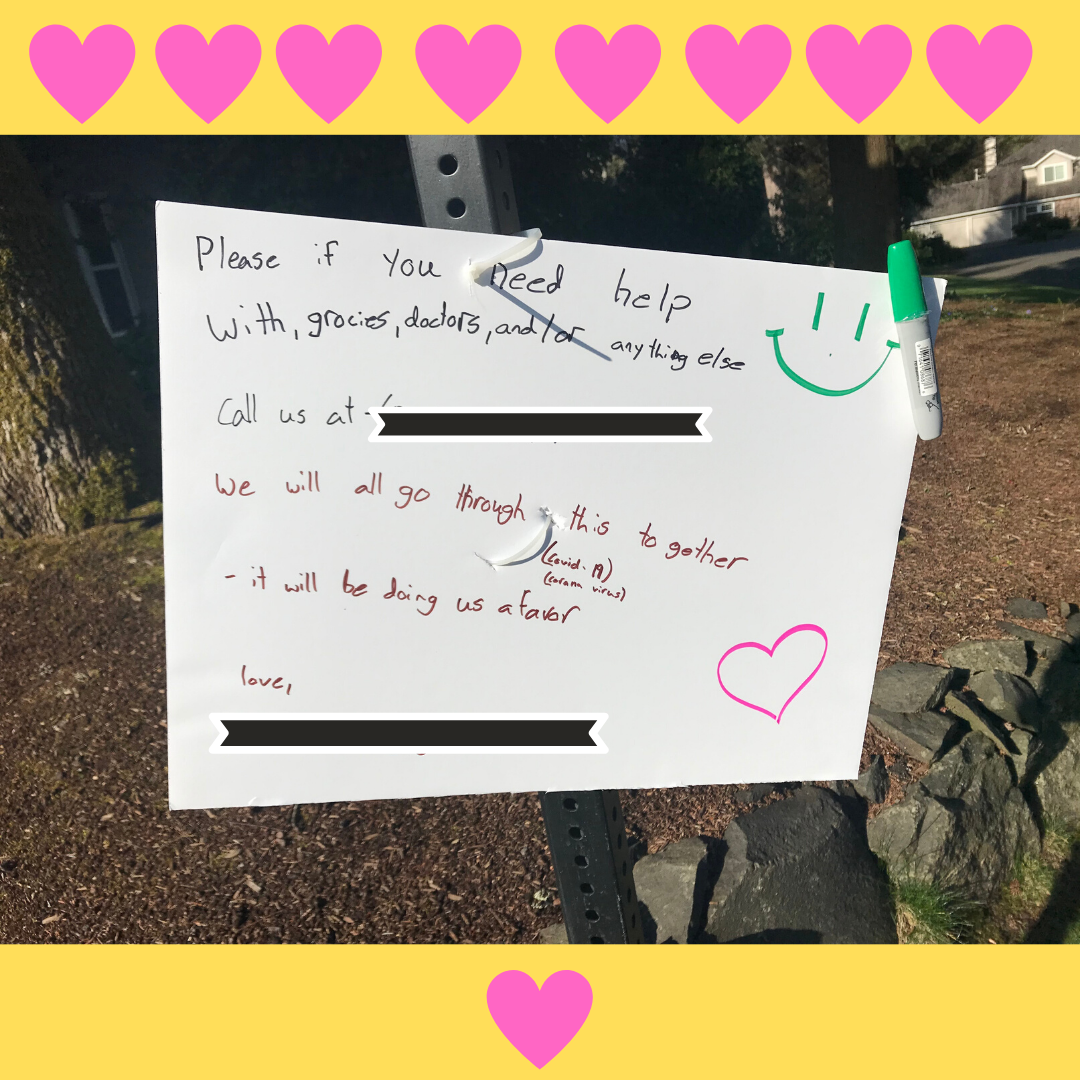 Please if you need help
with, grocies, doctors, and/or anything else
Call us at -
We will all go through this to gether
(Covid-19)
(corana virus)
- it will be doing us a favor
love,